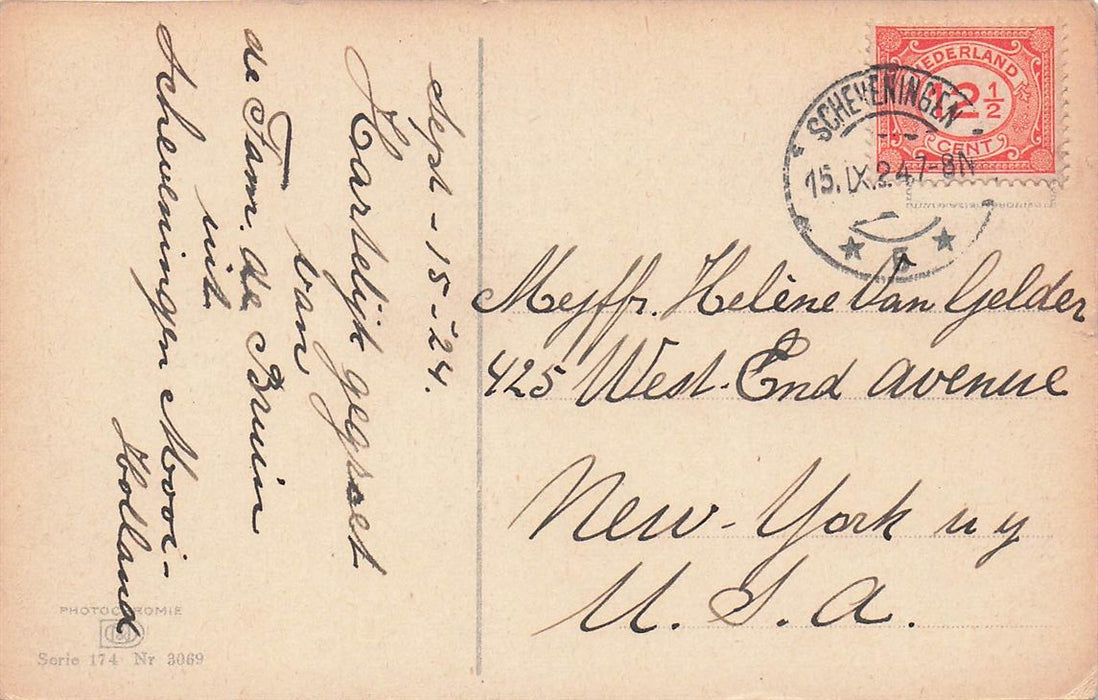 Sept - 15 - '24.
Hartelijk gegroet
van
de Fam. de Bruin
uit
Scheveningen Mooi-
Holland
NEDERLAND
2½
CENT
SCHEVENINGEN
15.IX.24.7-8N
Mejffr. Helène Van Gelder
425 West-End avenue
New-York n y
U. S. A.
PHOTOCHROMIE
Serie 174 Nr 3069